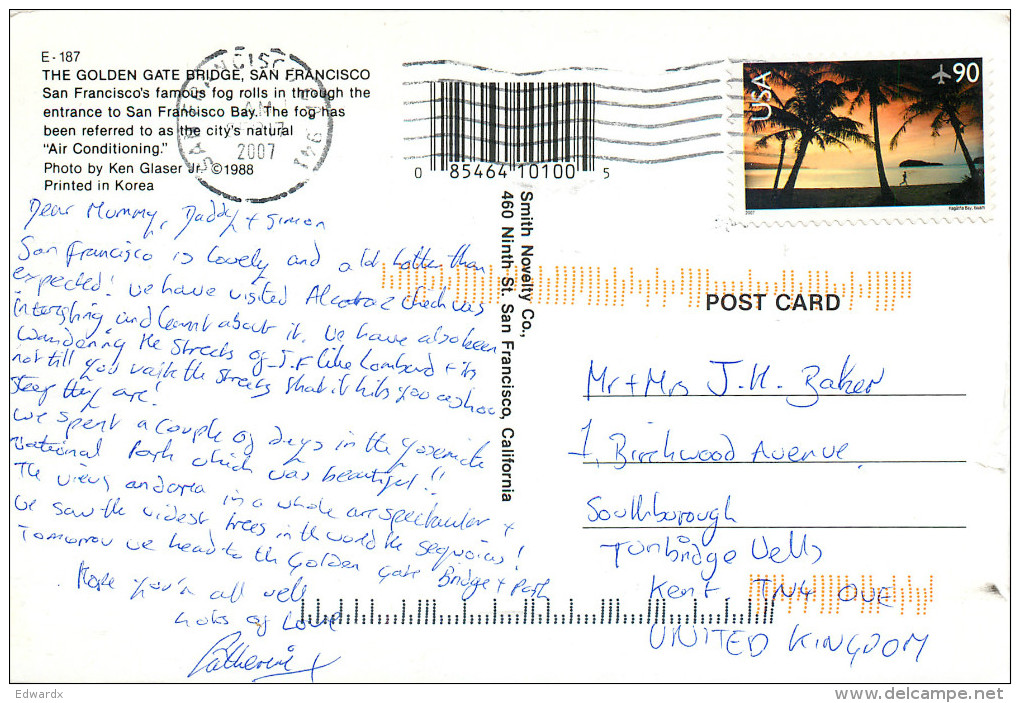 E-187
THE GOLDEN GATE BRIDGE, SAN FRANCISCO
San Francisco's famous fog rolls in through the
entrance to San Francisco Bay. The fog has
been referred to as the city's natural
"Air Conditioning."
Photo by Ken Glaser Jr. ©1988
Printed in Korea
SAN FRANCISCO
AM
2007
941
0 85464 10100 5
USA
90
2007
Hagåtña Bay, Guam
Smith Novelty Co.,
460 Ninth St. San Francisco, California
POST CARD
Dear Mummy, Daddy + Simon
San Francisco is lovely and a lot hotter than
expected! We have visited Alcatraz which was
interesting and learnt about it. We have also been
wandering the streets of S.F like Lombard + its
not till you walk the streets that it hits you as how
steep they are!
We spent a couple of days in the Yosemite
National Park which was beautiful!!
The views and area in a whole are spectacular +
we saw the widest trees in the world the sequoias!
Tomorrow we head to the Golden Gate Bridge + Park
Hope you're all well
Lots of Love
Catherine x
Mr + Mrs J.H. Baker
1, Birchwood Avenue,
Southborough
Tunbridge Wells
Kent. TN4 0UE
UNITED KINGDOM
Edwardx
delcampe.net